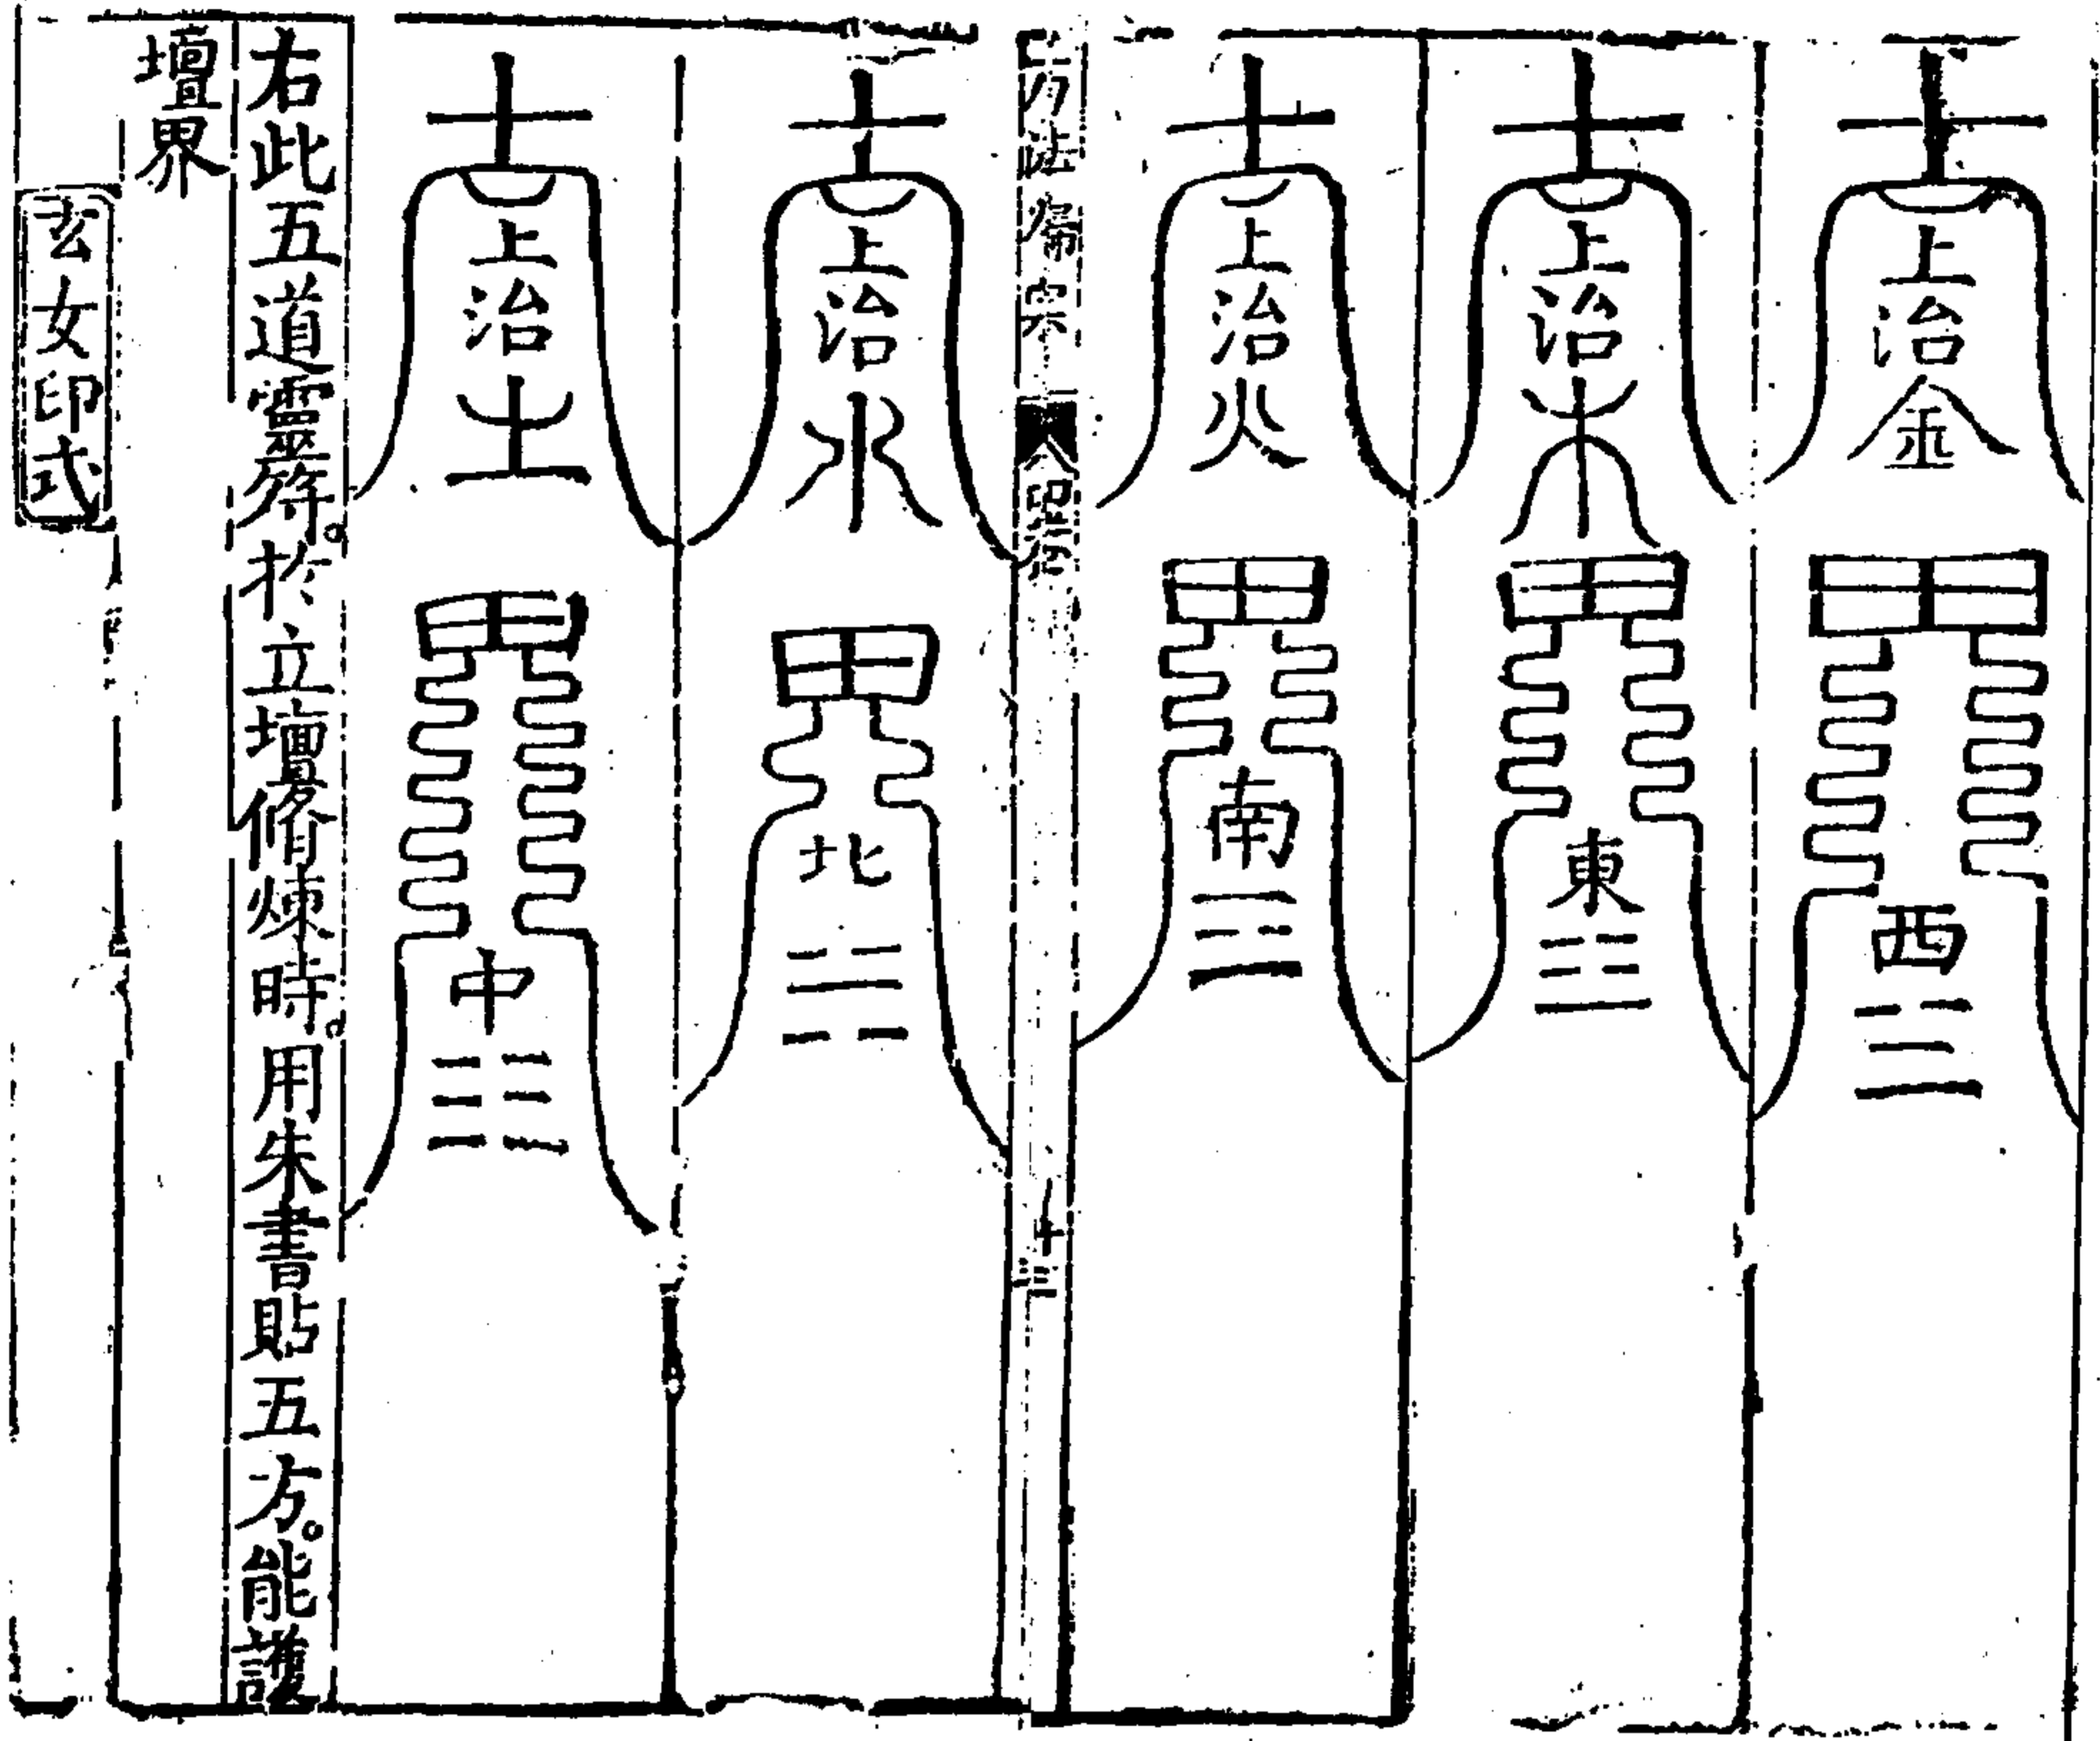 上治金 西
上治木 東
上治火 南
万法歸宗
十三
上治水 北
上治土 中
右此五道靈符。於立壇脩煉時。用朱書貼五方。能護
壇界
玄女印式